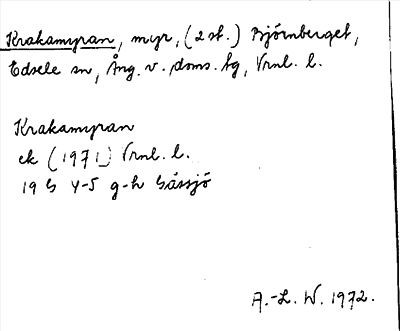 Krakamyran, myr, (2 st.) Björnberget,
Edsele sn, Ång. v. doms. tg, Vrnl. l.
Krakamyran
ek (1971) Vrnl. l.
19 G 4-5 g-h Gåssjö
A.-L. W. 1972.